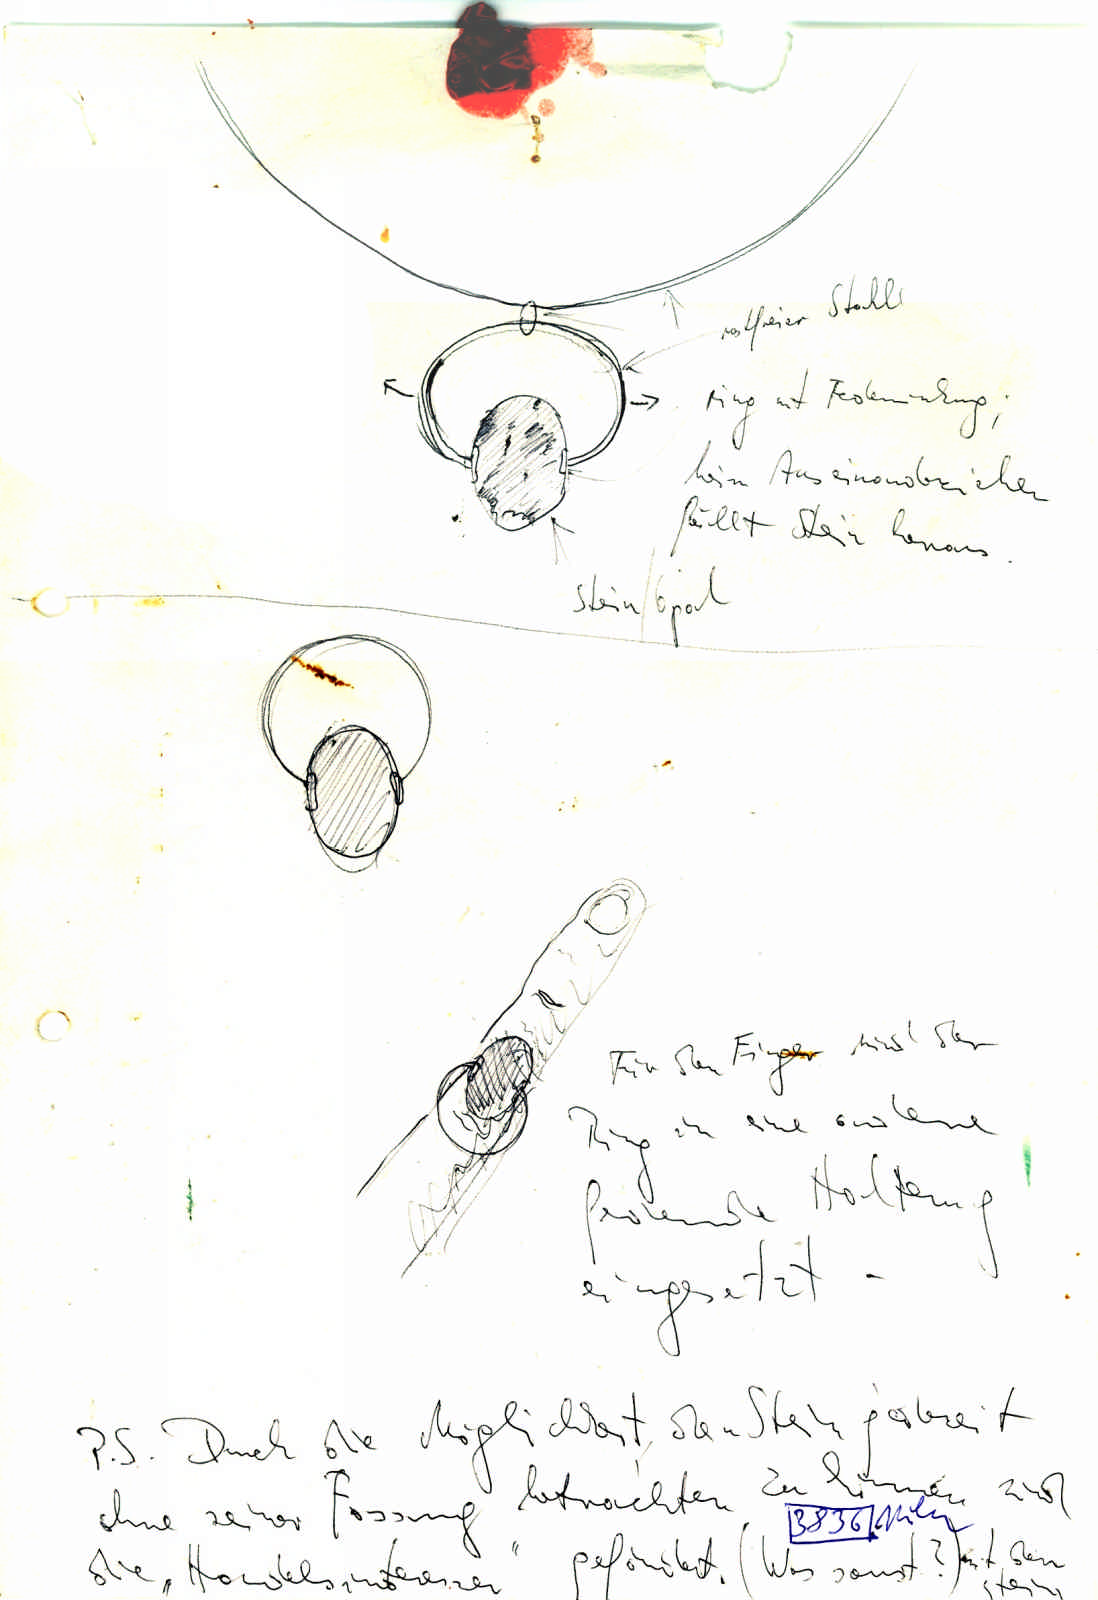 rostfreier Stahl
Ring mit Federwirkung;
beim Auseinanderziehen
fällt Stein heraus.
Stein/Opal
Für den Finger wird der
Ring in eine andere
federnde Halterung
eingesetzt -
P.S. Durch die Möglichkeit, den Stein jederzeit
ohne seiner Fassung betrachten zu können wird
3836
die "Handelsinteressen" gefördert. (Was sonst?) mit dem
Stein